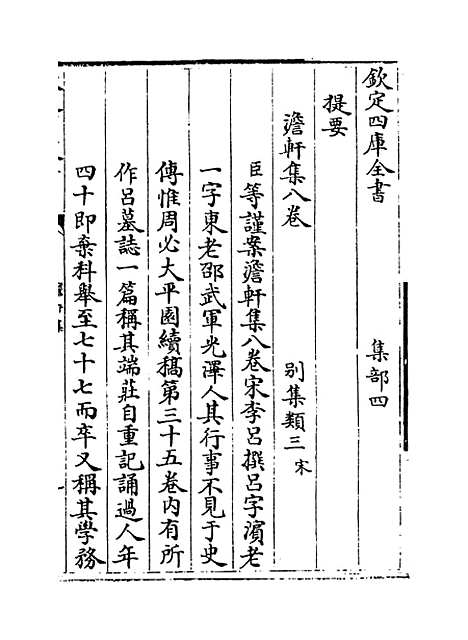 欽定四庫全書　集部四
提要
澹軒集八卷　别集類三 宋
臣等謹案澹軒集八卷宋李呂撰呂字濱老
一字東老邵武軍光澤人其行事不見于史
傳惟周必大平園續稿第三十五卷内有所
作呂墓誌一篇稱其端莊自重記誦過人年
四十即棄科舉至七十七而卒又稱其學務